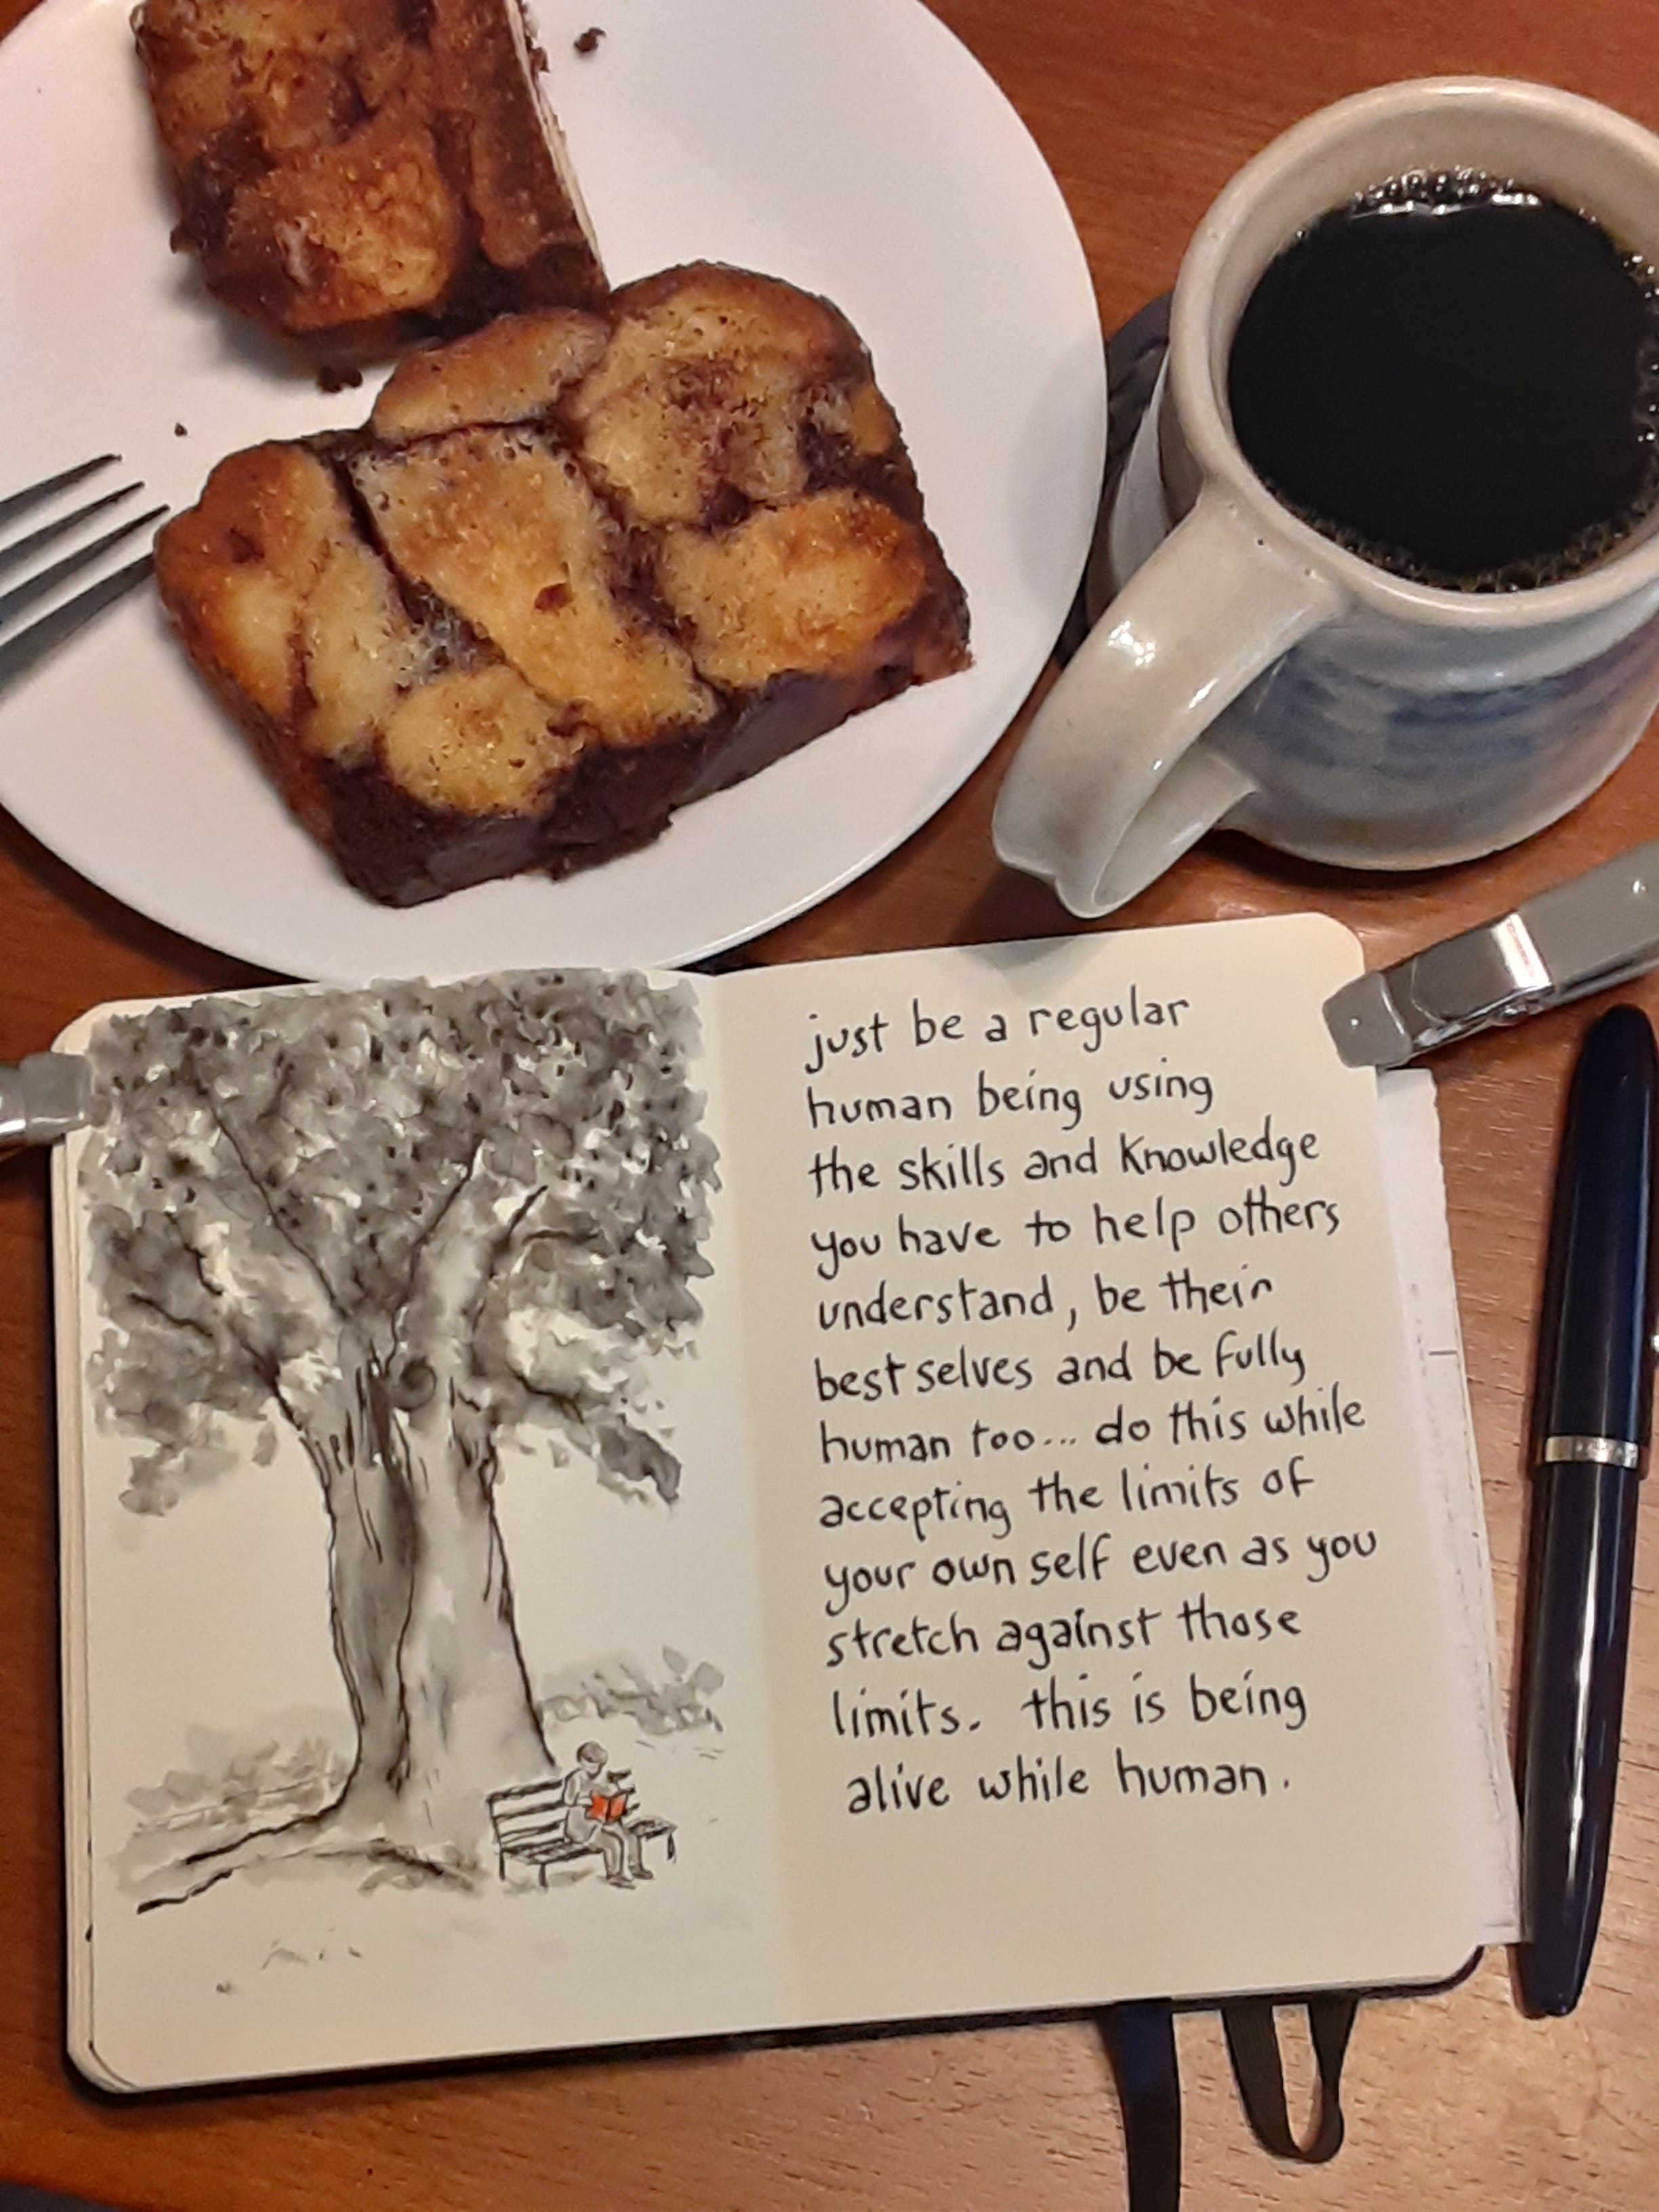 just be a regular
human being using
the skills and knowledge
you have to help others
understand, be their
best selves and be fully
human too... do this while
accepting the limits of
your own self even as you
stretch against those
limits. this is being
alive while human.